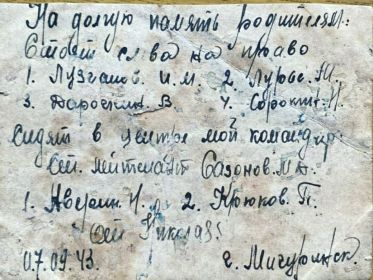 На долгую память родителям.
Стоят слева на право
1. Лузганов. И. М. 2. Гурьев. М.
3. Даровский. В. 4. Сорокин. И.
Сидят в центре мой командир.
Ст. лейтенант Сазонов. М. А.
1. Аверин. И. 2. Крюков. П.
Николай
07.09.43. г. Мичуринск.